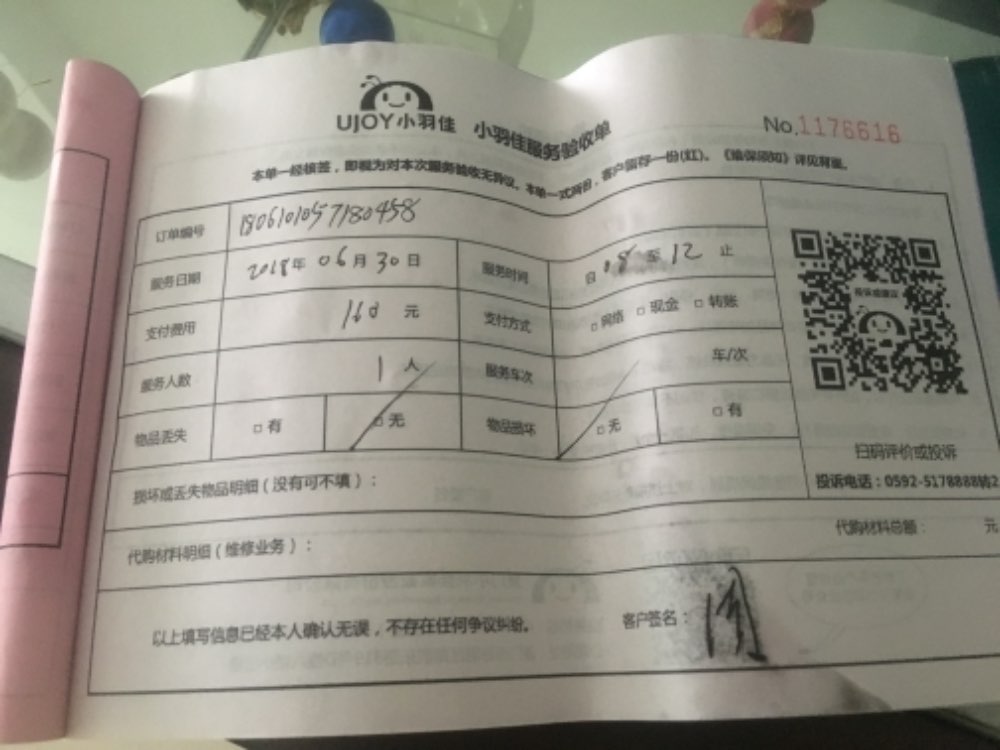 UJOY小羽佳 小羽佳服务验收单
No.1176616
本单一经核签，即视为对本次服务验收无异议。本单一式两份，客户留存一份(红)。《维保须知》详见背面。
订单编号 1806101057180458
服务日期 2018年 06月 30日 服务时间 自 08 至 12 止
支付费用 160 元 支付方式 □网络 □现金 □转账
服务人数 1 人 服务车次 车/次
物品丢失 □有 □无 物品损坏 □无 □有
投诉或建议
扫码评价或投诉
投诉电话：0592-5178888转2
损坏或丢失物品明细（没有可不填）：
代购材料明细（维修业务）：
代购材料总额： 元
以上填写信息已经本人确认无误，不存在任何争议纠纷。
客户签名：